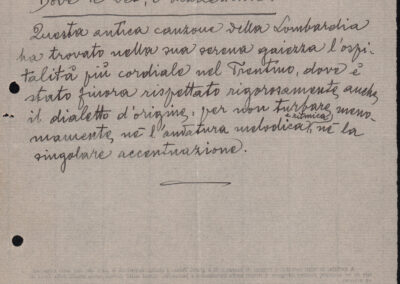 Questa antica canzone della Lombardia
ha trovato nella sua serena gaiezza l'ospi-
talità più cordiale nel Trentino, dove è
stato finora rispettato rigorosamente anche
il dialetto d'origine, per non turbare meno-
e ritmica
mamente, nè l'andatura melodica, nè la
singolare accentuazione.